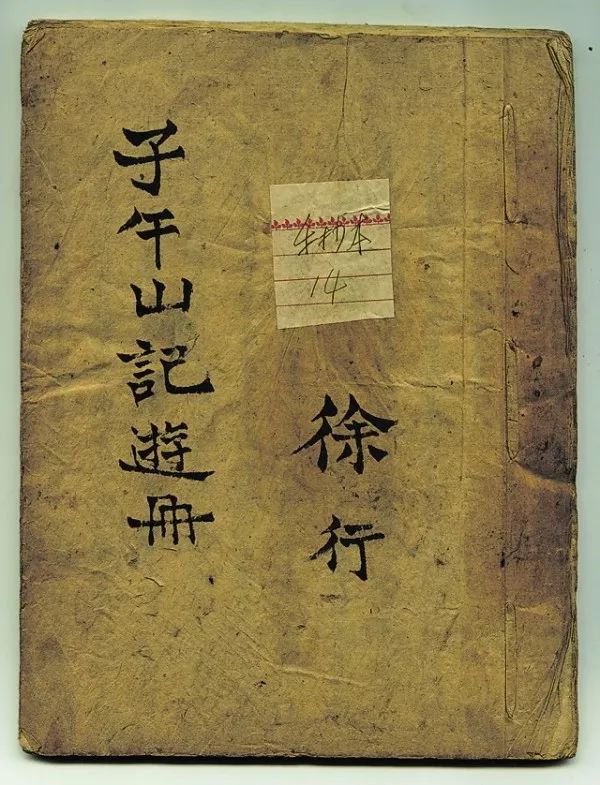 抄本
14
徐行
子午山記遊冊